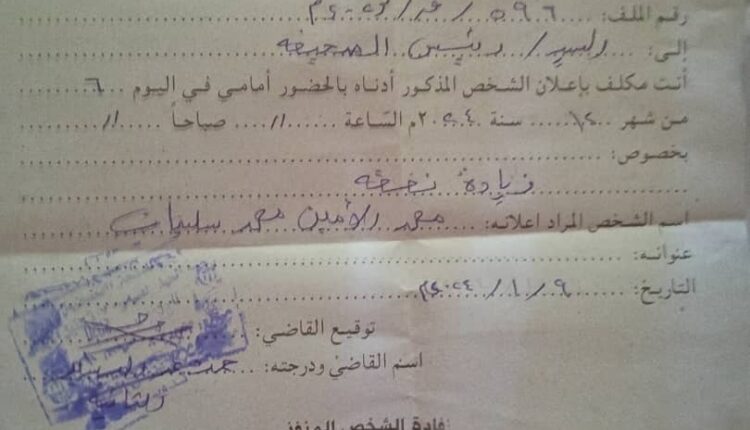 رقم الملف: ٥٩٦ / /
إلى: السيد/ رئيس الصحيفة
أنت مكلف بإعلان الشخص المذكور أدناه بالحضور أمامي في اليوم ٦
من شهر سنة ٢٠٢٤م الساعة ١١ صباحاً ١١
بخصوص:
زيادة نفقة
اسم الشخص المراد اعلانه: محمد الأمين محمد سليمان
عنوانه:
التاريخ: ٩/ ١/ ٢٠٢٤م
توقيع القاضي:
اسم القاضي ودرجته:
إفادة الشخص المنفذ